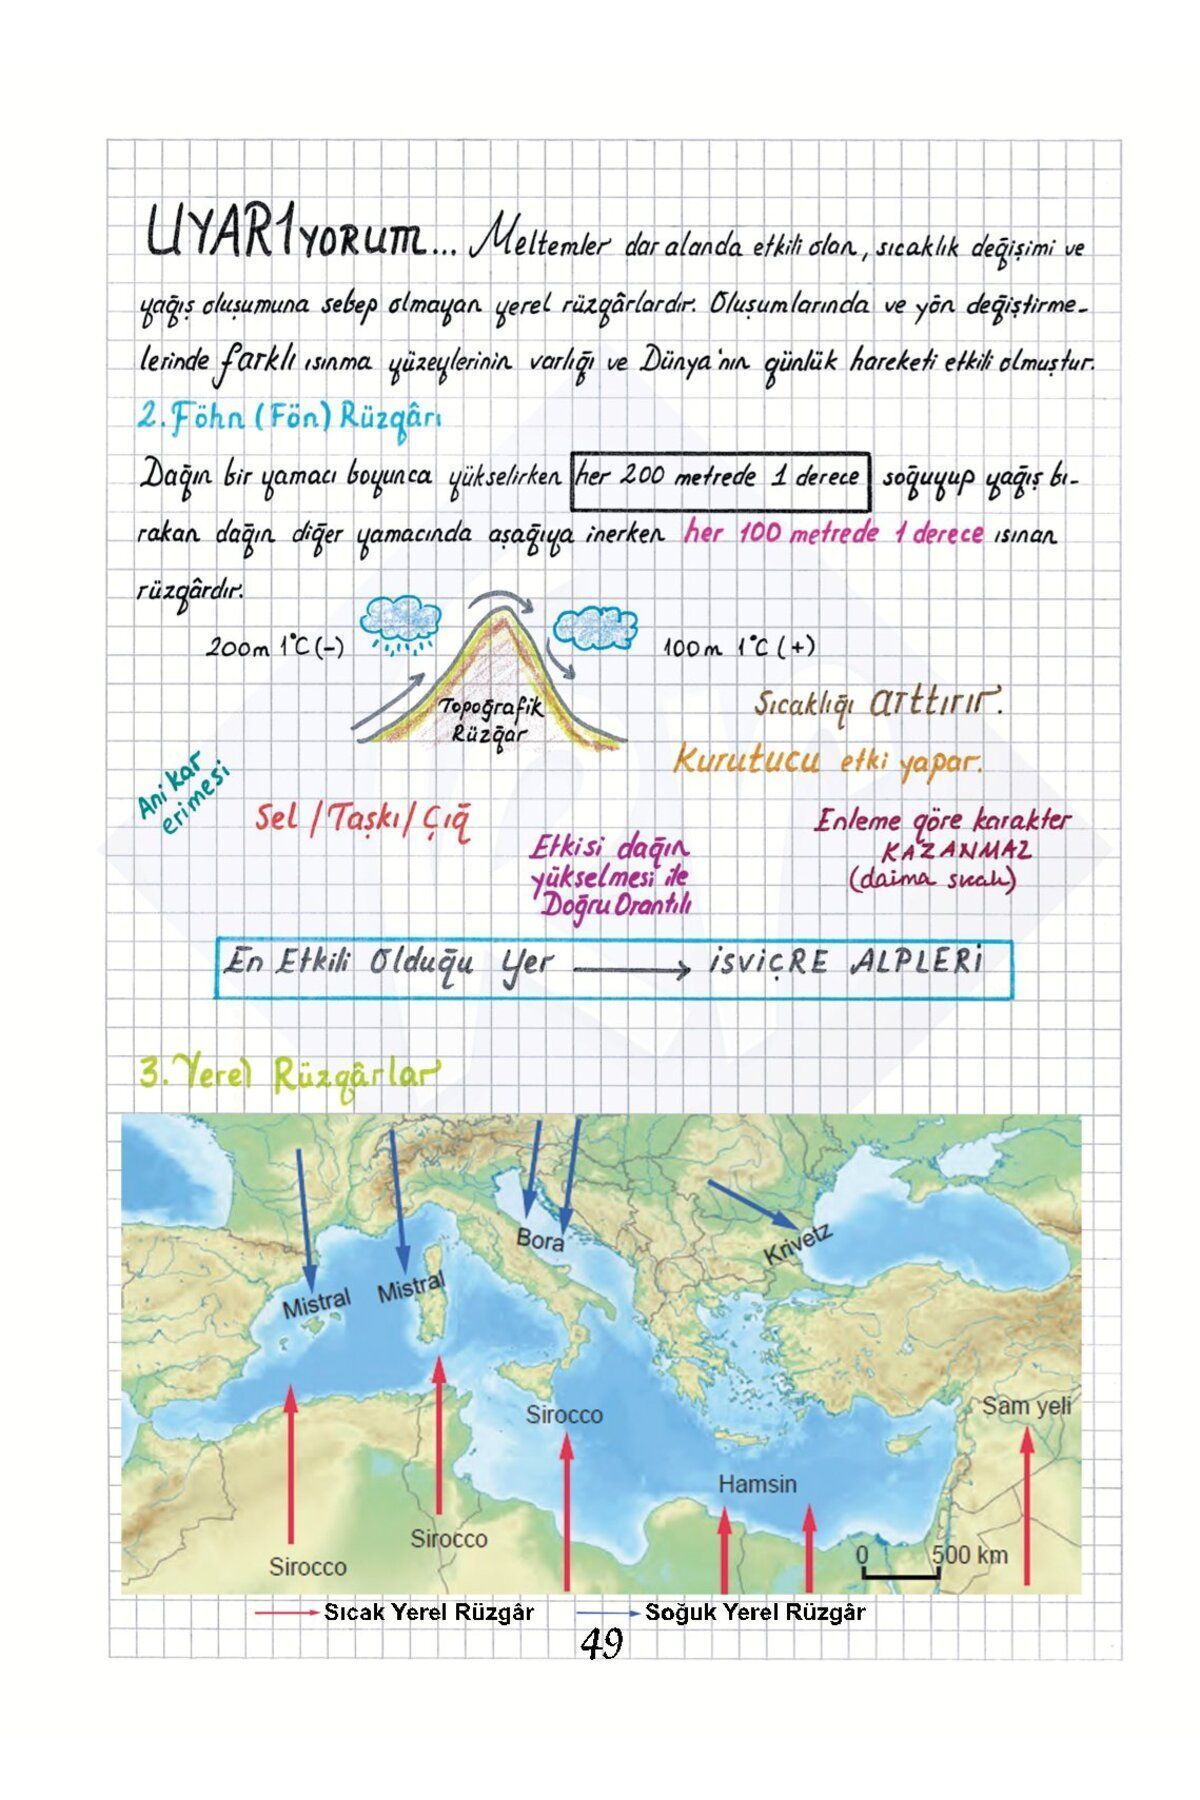 UYARIYORUM... Meltemler dar alanda etkili olan, sıcaklık değişimi ve
yağış oluşumuna sebep olmayan yerel rüzgârlardır. Oluşumlarında ve yön değiştirme-
lerinde farklı ısınma yüzeylerinin varlığı ve Dünya'nın günlük hareketi etkili olmuştur.
2. Föhn (Fön) Rüzgârı
Dağın bir yamacı boyunca yükselirken her 200 metrede 1 derece soğuyup yağış bı-
rakan dağın diğer yamacında aşağıya inerken her 100 metrede 1 derece ısınan
rüzgârdır.
200m 1°C (-)
100m 1°C (+)
Topoğrafik
Rüzgar
Sıcaklığı arttırır.
Kurutucu etki yapar.
Ani kar
erimesi
Sel / Taşkı / Çığ
Etkisi dağın
yükselmesi ile
Doğru Orantılı
Enleme göre karakter
KAZANMAZ
(daima sıcak)
En Etkili Olduğu Yer → İSVİÇRE ALPLERİ
3. Yerel Rüzgârlar
Bora
Krivetz
Mistral
Mistral
Sirocco
Sam yeli
Hamsin
Sirocco
Sirocco
0 500 km
Sıcak Yerel Rüzgâr
Soğuk Yerel Rüzgâr
49